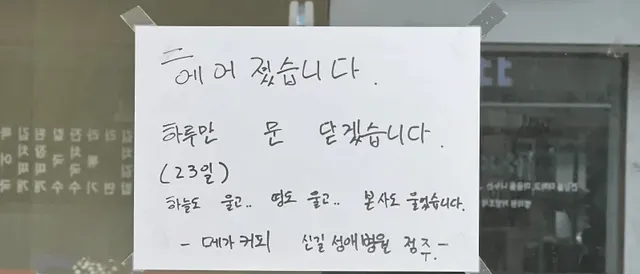 헤어졌습니다.
하루만 문 닫겠습니다.
(23일)
하늘도 울고.. 땅도 울고.. 본사도 울었습니다.
- 메가 커피 신길 성애병원 점주.-